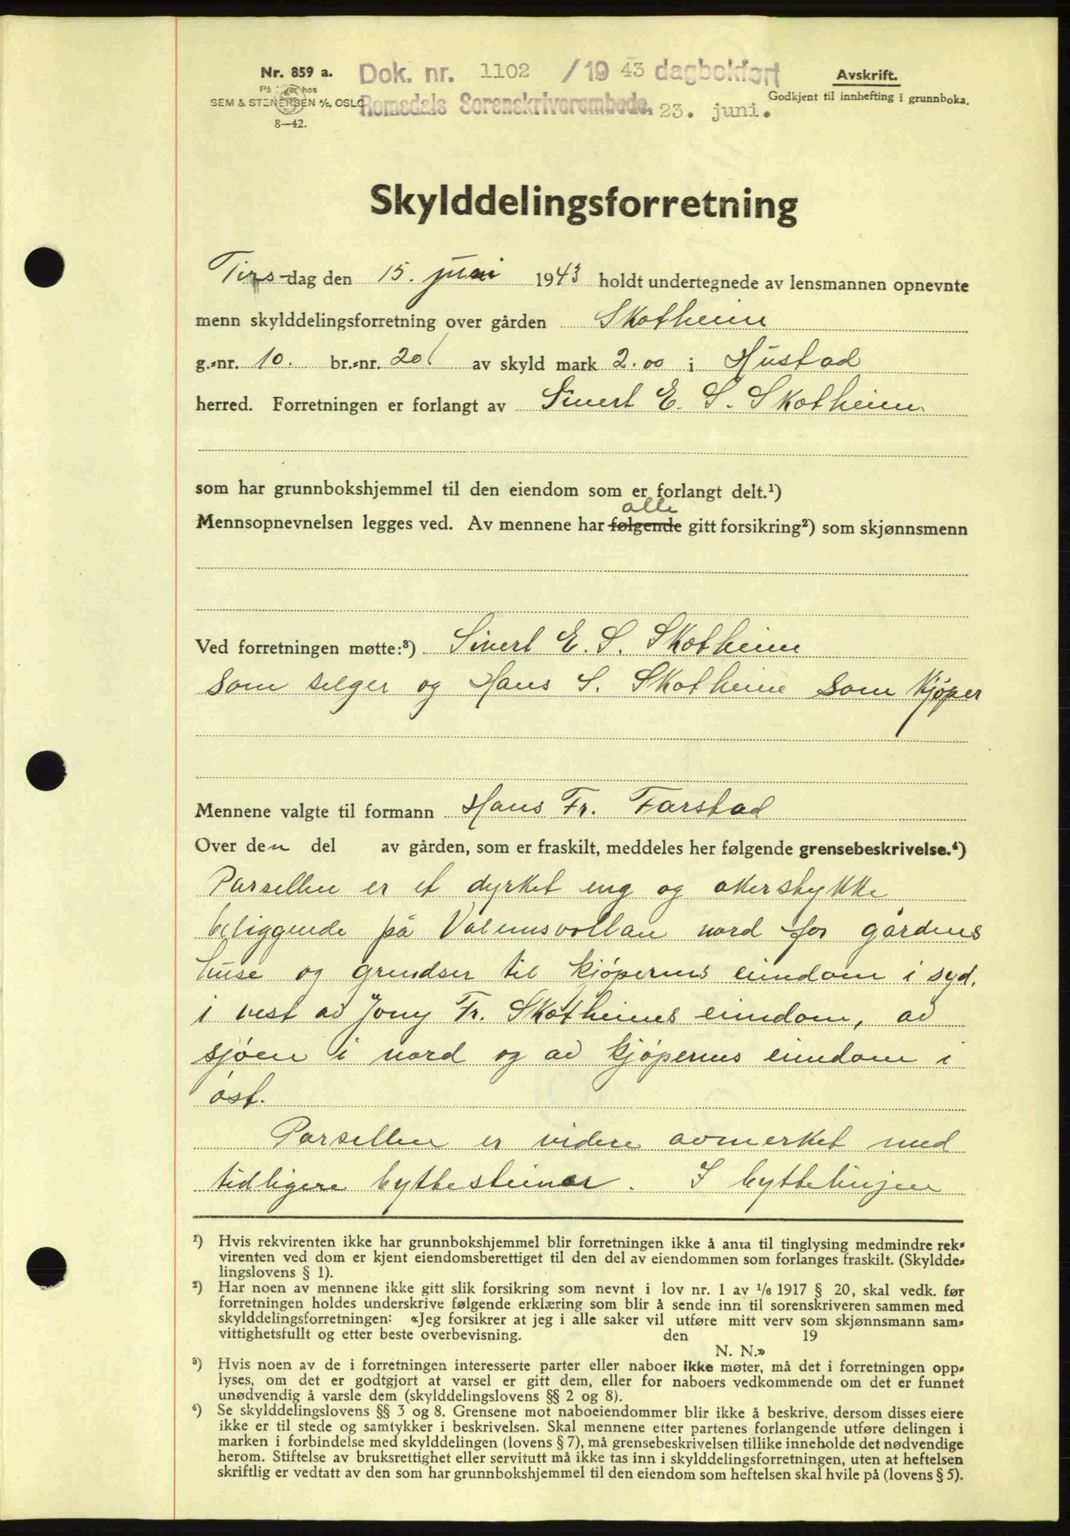 Nr. 859 a.
Dok. nr. 1102 /19 43 dagbokført
Avskrift.
SEM & STENERSEN A/S, OSLO
Romsdals Sorenskriverembede. 23. juni.
Godkjent til innhefting i grunnboka.
8—42.
Skylddelingsforretning
Tirsdag den 15. juni 1943 holdt undertegnede av lensmannen opnevnte
menn skylddelingsforretning over gården Skotheim
g.-nr. 10. br.-nr. 20 av skyld mark 2.00 i Hustad
herred. Forretningen er forlangt av Sivert E. S. Skotheim
som har grunnbokshjemmel til den eiendom som er forlangt delt.¹)
alle
Mennsopnevnelsen legges ved. Av mennene har følgende gitt forsikring²) som skjønnsmenn
Ved forretningen møtte:³) Sivert E. S. Skotheim
som selger og Hans S. Skotheim som kjøper
Mennene valgte til formann Hans Fr. Farstad
Over den del av gården, som er fraskilt, meddeles her følgende grensebeskrivelse.⁴)
Parsellen er et dyrket eng og akerstykke
beliggende på nord for gårdens
huse og grendser til kjøperens eiendom i syd.
i vest av Jony Fr. Skotheims eiendom, av
sjøen i nord og av kjøperens eiendom i
øst.
Parsellen er videre avmerket med
tidligere byttesteiner. I byttelinjen
¹) Hvis rekvirenten ikke har grunnbokshjemmel blir forretningen ikke å anta til tinglysing medmindre rek-
virenten ved dom er kjent eiendomsberettiget til den del av eiendommen som forlanges fraskilt. (Skyldde-
lingslovens § 1).
²) Har noen av mennene ikke gitt slik forsikring som nevnt i lov nr. 1 av 1/6 1917 § 20, skal vedk. før
forretningen holdes underskrive følgende erklæring som blir å sende inn til sorenskriveren sammen med
skylddelingsforretningen: «Jeg forsikrer at jeg i alle saker vil utføre mitt verv som skjønnsmann sam-
vittighetsfullt og etter beste overbevisning. den 19
N. N.»
³) Hvis noen av de i forretningen interesserte parter eller naboer ikke møter, må det i forretningen opp-
lyses, om det er godtgjort at varsel er gitt dem, eller for naboers vedkommende om det er funnet
unødvendig å varsle dem (skylddelingslovens §§ 2 og 8).
⁴) Se skylddelingslovens §§ 3 og 8. Grensene mot naboeiendommer blir ikke å beskrive, dersom disses eiere
ikke er til stede og samtykker i beskrivelsen. Skal mennene etter partenes forlangende utføre delingen i
marken i forbindelse med skylddelingen (lovens § 7), må grensebeskrivelsen tillike inneholde det nødvendige
herom. Stiftelse av bruksrettighet eller servitutt må ikke tas inn i skylddelingsforretningen, uten at heftelsen
skriftlig er vedtatt av den som har grunnbokshjemmel til den eiendom som heftelsen skal hvile på (lovens § 5).